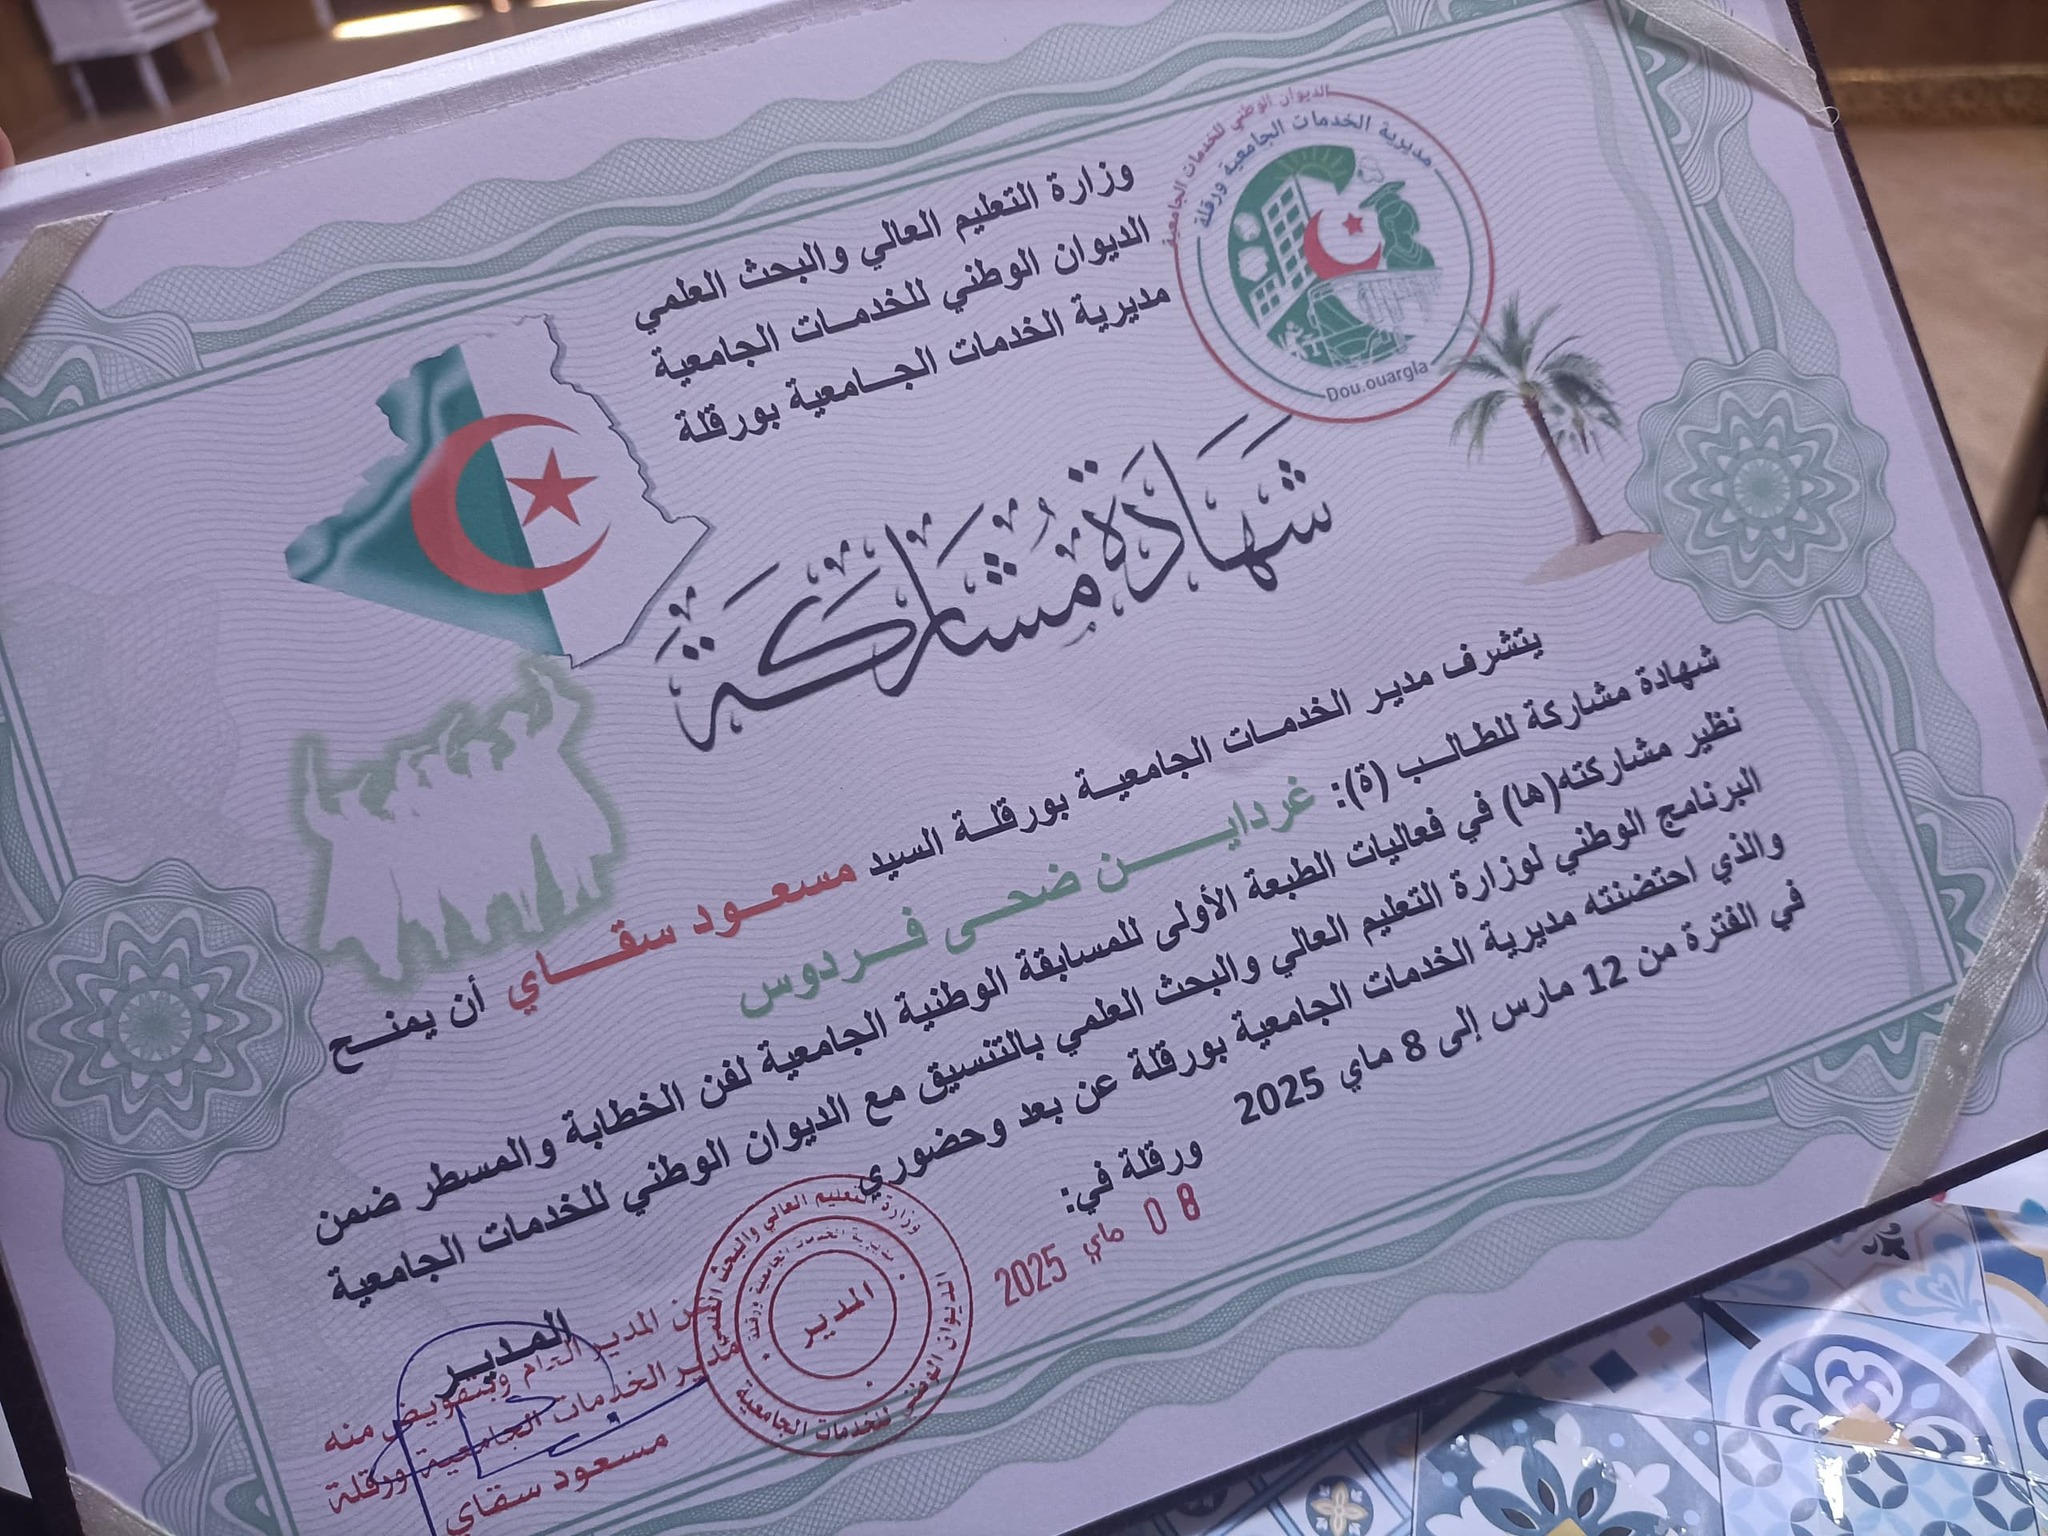 الديوان الوطني للخدمات الجامعية
مديرية الخدمات الجامعية ورقلة
Dou.ouargla
وزارة التعليم العالي والبحث العلمي
الديوان الوطني للخدمـات الجامعية
مديرية الخدمات الجـامعية بورقلة
شَهَادَة مُشَارَكَة
يتشرف مدير الخدمـات الجامعيـة بورقلـة السيد مسعـود سقـاي أن يمنـح
شهادة مشاركة للطالـب (ة): غردايـن ضحى فـردوس
نظير مشاركته(ها) في فعاليات الطبعة الأولى للمسابقة الوطنية الجامعية لفن الخطابة والمسطر ضمن
البرنامج الوطني لوزارة التعليم العالي والبحث العلمي بالتنسيق مع الديوان الوطني للخدمات الجامعية
والذي احتضنته مديرية الخدمات الجامعية بورقلة عن بعد وحضوري
في الفترة من 12 مارس إلى 8 ماي 2025
ورقلة في:
08 ماي 2025
المديـر
عن المدير العام وبتفويض منه
مدير الخدمات الجامعية ورقلة
مسعود سقاي
وزارة التعليم العالي والبحث العلمي
الديوان الوطني للخدمات الجامعية
مديرية الخدمات الجامعية ورقلة
المدير